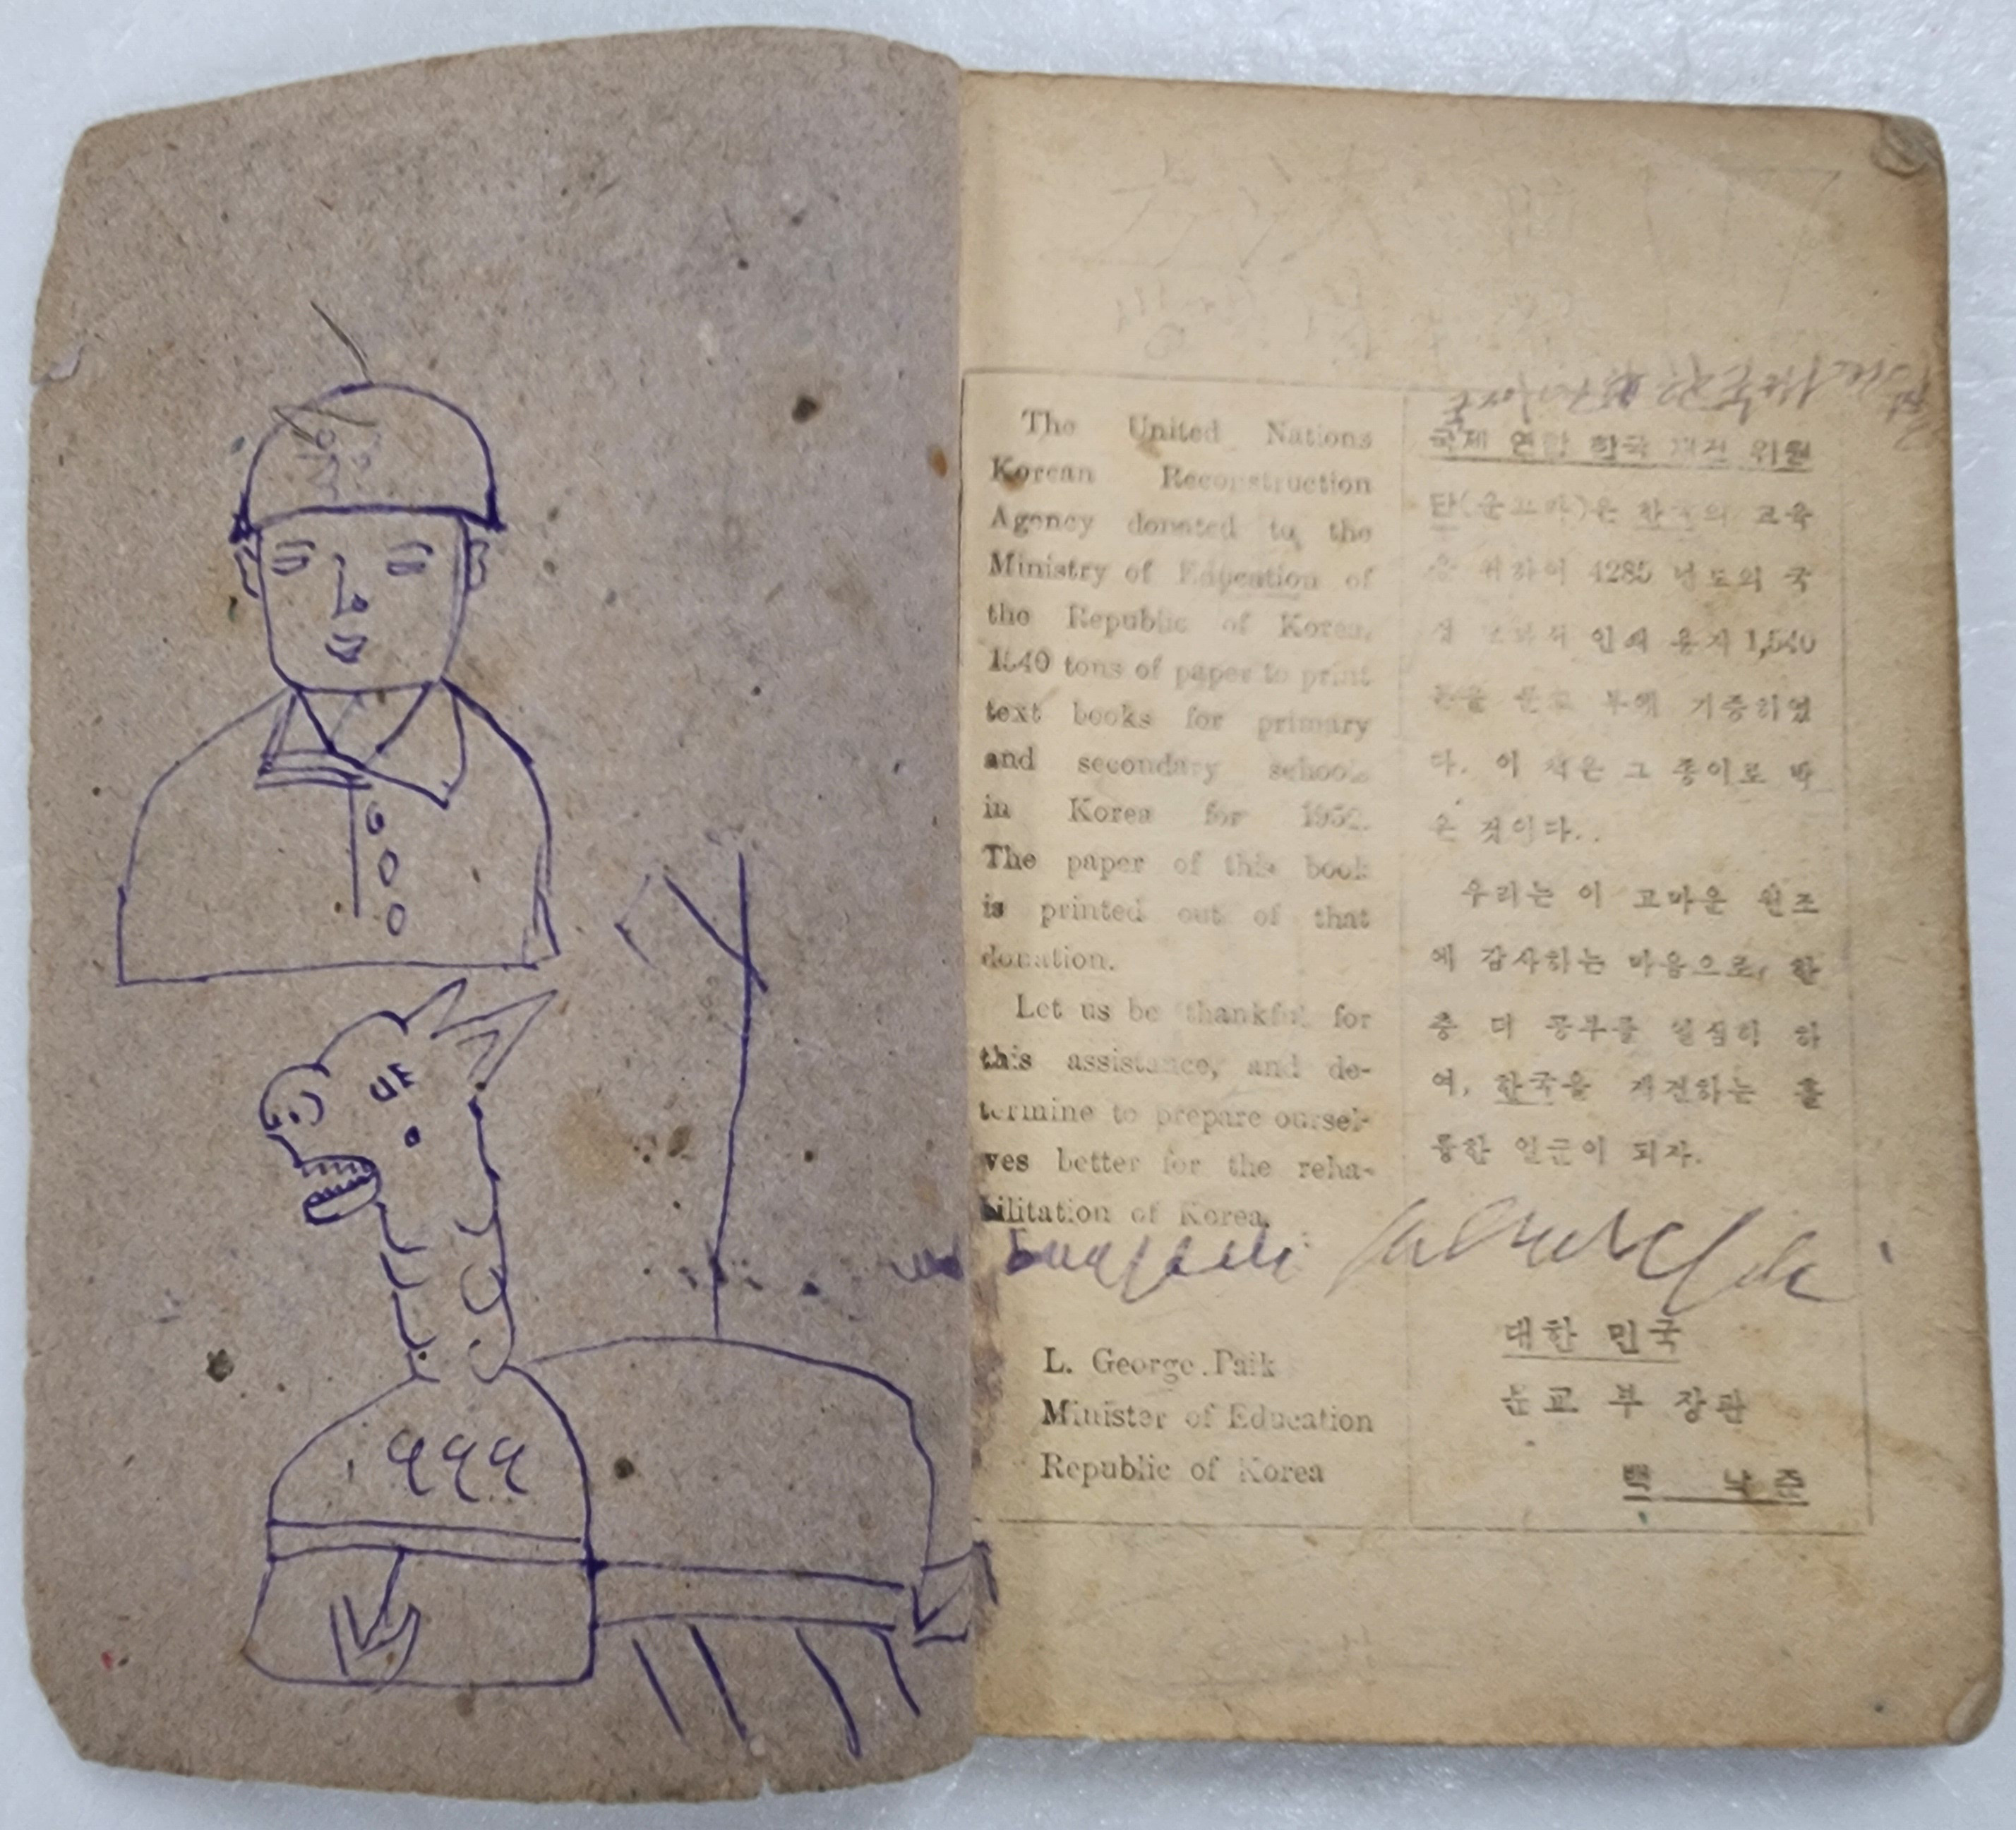 The United Nations
Korean Reconstruction
Agency donated to the
Ministry of Education of
the Republic of Korea,
1540 tons of paper to print
text books for primary
and secondary schools
in Korea for 1952.
The paper of this book
is printed out of that
donation.
Let us be thankful for
this assistance, and de-
termine to prepare oursel-
ves better for the reha-
bilitation of Korea.
L. George Paik
Minister of Education
Republic of Korea
국제 연합 한국 재건 위원
단(운끄라)은 한국의 교육
을 위하여 4285 년도의 국
정 교과서 인쇄 용지 1,540
톤을 문교 부에 기증하였
다. 이 책은 그 종이로 박
은 것이다.
우리는 이 고마운 원조
에 감사하는 마음으로, 한
층 더 공부를 열심히 하
여, 한국을 재건하는 훌
륭한 일군이 되자.
대한 민국
문교 부 장관
백 낙 준